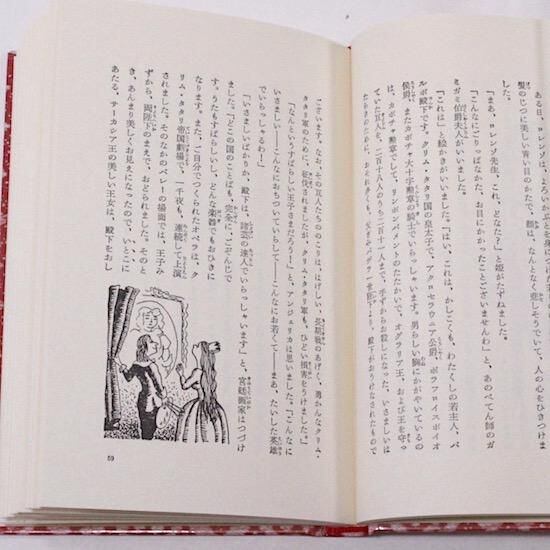 ある日、ロレンゾ
髪のじつに美しい青い目のかたで、顔は、なんとなく悲しそうでいて、人の心をなやませる
した。
「まあ、ロレンゾ先生、これ、どなた?」と姫がたずねました。
「こんなにごりっぱなかた、お目にかかったことございませんわ」と、あのぺてん師のグ
ルガミ伯爵夫人がいいました。
「これは」と絵かきがいいました。「はい、これは、かしこくも、わたくしの若主人、パ
ルボ殿下です。クリム・タタリ国の皇太子で、アクロセラウニア公爵、ポラフロイスボイオ
侯爵、またカボチャ大十字勲章の騎士でいらっしゃいます。男らしい胸にかがやいているの
は、カボチャ勲章でして、リンボンバメントのたたかいで、オグラリア王、および王を守っ
ていた巨人たち、二百十八人のうち二百十一人まで、手ずからお殺しになった、いさましい
ごさいます。なお、その巨人たちののこりは、はげしい、長期戦のあげく、勇かんなクリム・
タタリ軍のために、征伐されましたが、クリム・タタリ軍も、ひどい損害をうけました。」
「なんというすばらしい王子さまだろう!」と、アンジェリカは思いました。「こんなに
いさましい――こんなにおちついていらして――こんなにお若くて――まあ、たいした英雄
でいらっしゃるわ!」
「いさましいばかりか、殿下は、諸芸の達人でいらっしゃいます」と、宮廷画家はつづけ
ました。「どこの国のことばも、完全に、ごぞんじで
す。うたもすばらしいし、どんな楽器でもおひきに
なります。また、ご自分でつくられたオペラは、ク
リム・タタリ帝国劇場で、一千夜も、連続して上演
されました。そのなかのバレーの場面では、王子み
ずから、両陛下のまえで、おどられました。そのと
き、あんまり美しくお見えになったので、いとこに
あたる、サーカシア王の美しい王女は、殿下をおし
59